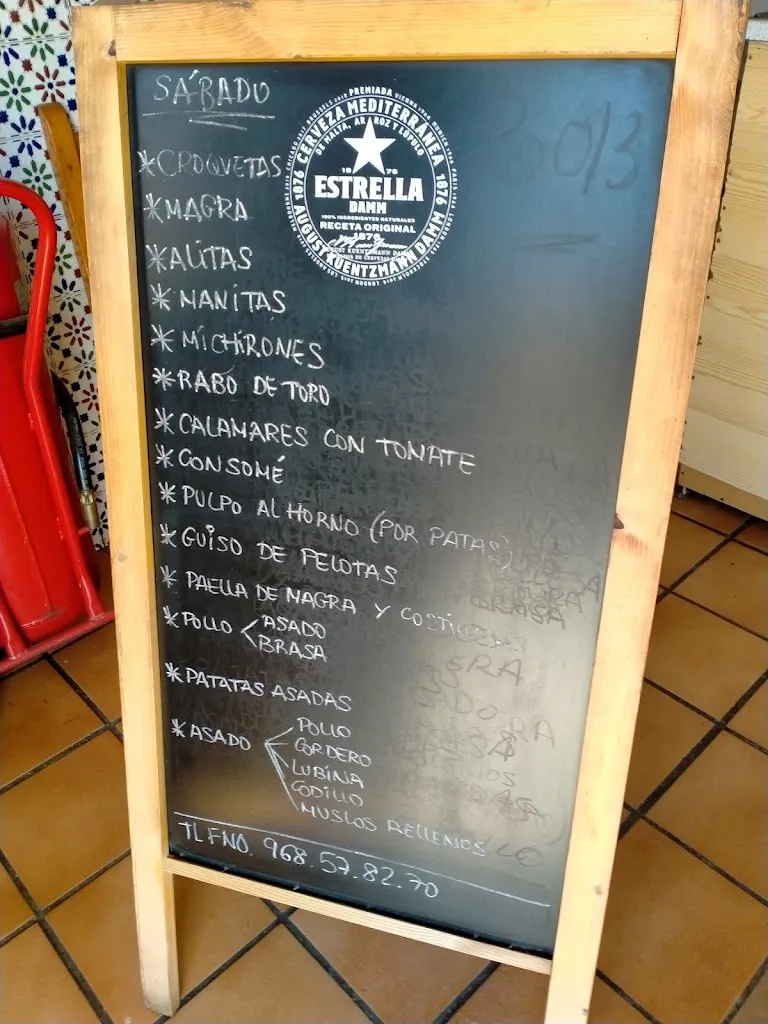 SÁBADO
PREMIADA
CERVEZA MEDITERRÁNEA
DE MALTA, ARROZ Y LÚPULO
1876
1876
1876
ESTRELLA
DAMM
100% INGREDIENTES NATURALES
RECETA ORIGINAL
1876
AUGUST KUENTZMANN DAMM
*CROQUETAS
*MAGRA
*ALITAS
*MANITAS
*MICHIRONES
*RABO DE TORO
*CALAMARES CON TOMATE
*CONSOMÉ
*PULPO AL HORNO (POR PATAS)
*GUISO DE PELOTAS
*PAELLA DE MAGRA Y COSTILLEJAS
*POLLO < ASADO
BRASA
*PATATAS ASADAS
*ASADO
POLLO
CORDERO
LUBINA
CODILLO
MUSLOS RELLENOS
TLFNO. 968.57.82.70